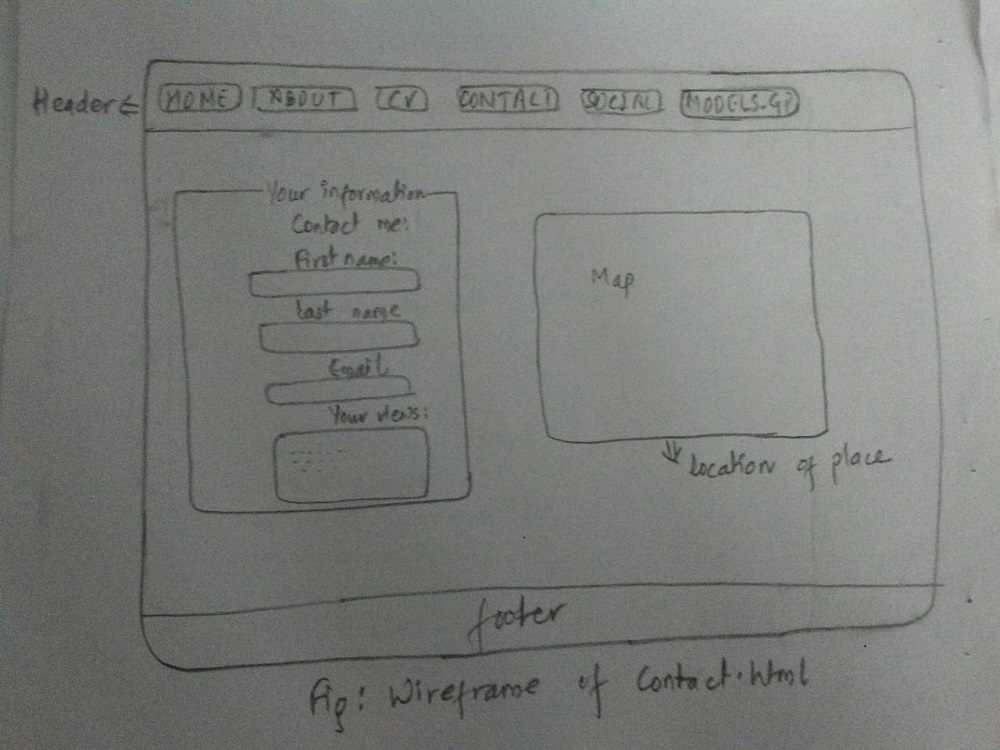 Header
HOME ABOUT CV CONTACT SOCIAL
Your information
Contact me:
First name:
Last name
Email
Your views:
Map
Location of place
footer
Fig: Wireframe of Contact.html